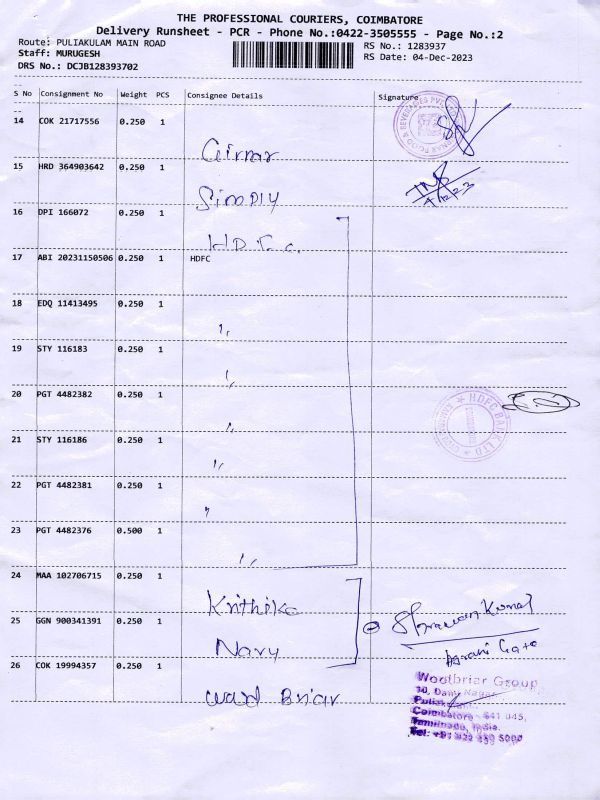 THE PROFESSIONAL COURIERS, COIMBATORE
Delivery Runsheet - PCR - Phone No.:0422-3505555 - Page No.:2
Route: PULIAKULAM MAIN ROAD
RS No.: 1283937
Staff: MURUGESH
RS Date: 04-Dec-2023
DRS No.: DCJB128393702
S No Consignment No Weight PCS Consignee Details Signature
14 COK 21717556 0.250 1
Girnar
15 HRD 364903642 0.250 1
Simply
16 DPI 166072 0.250 1
HDFC
17 ABI 20231150506 0.250 1 HDFC
18 EDQ 11413495 0.250 1
"
19 STY 116183 0.250 1
"
20 PGT 4482382 0.250 1
"
HDFC BANK LTD
21 STY 116186 0.250 1
"
22 PGT 4482381 0.250 1
"
23 PGT 4482376 0.500 1
"
24 MAA 102706715 0.250 1
Krithika
25 GGN 900341391 0.250 1
Navy
26 COK 19994357 0.250 1
Wood Briar
Woodbriar Group
Coimbatore - 641 045,
Tamilnadu, India.